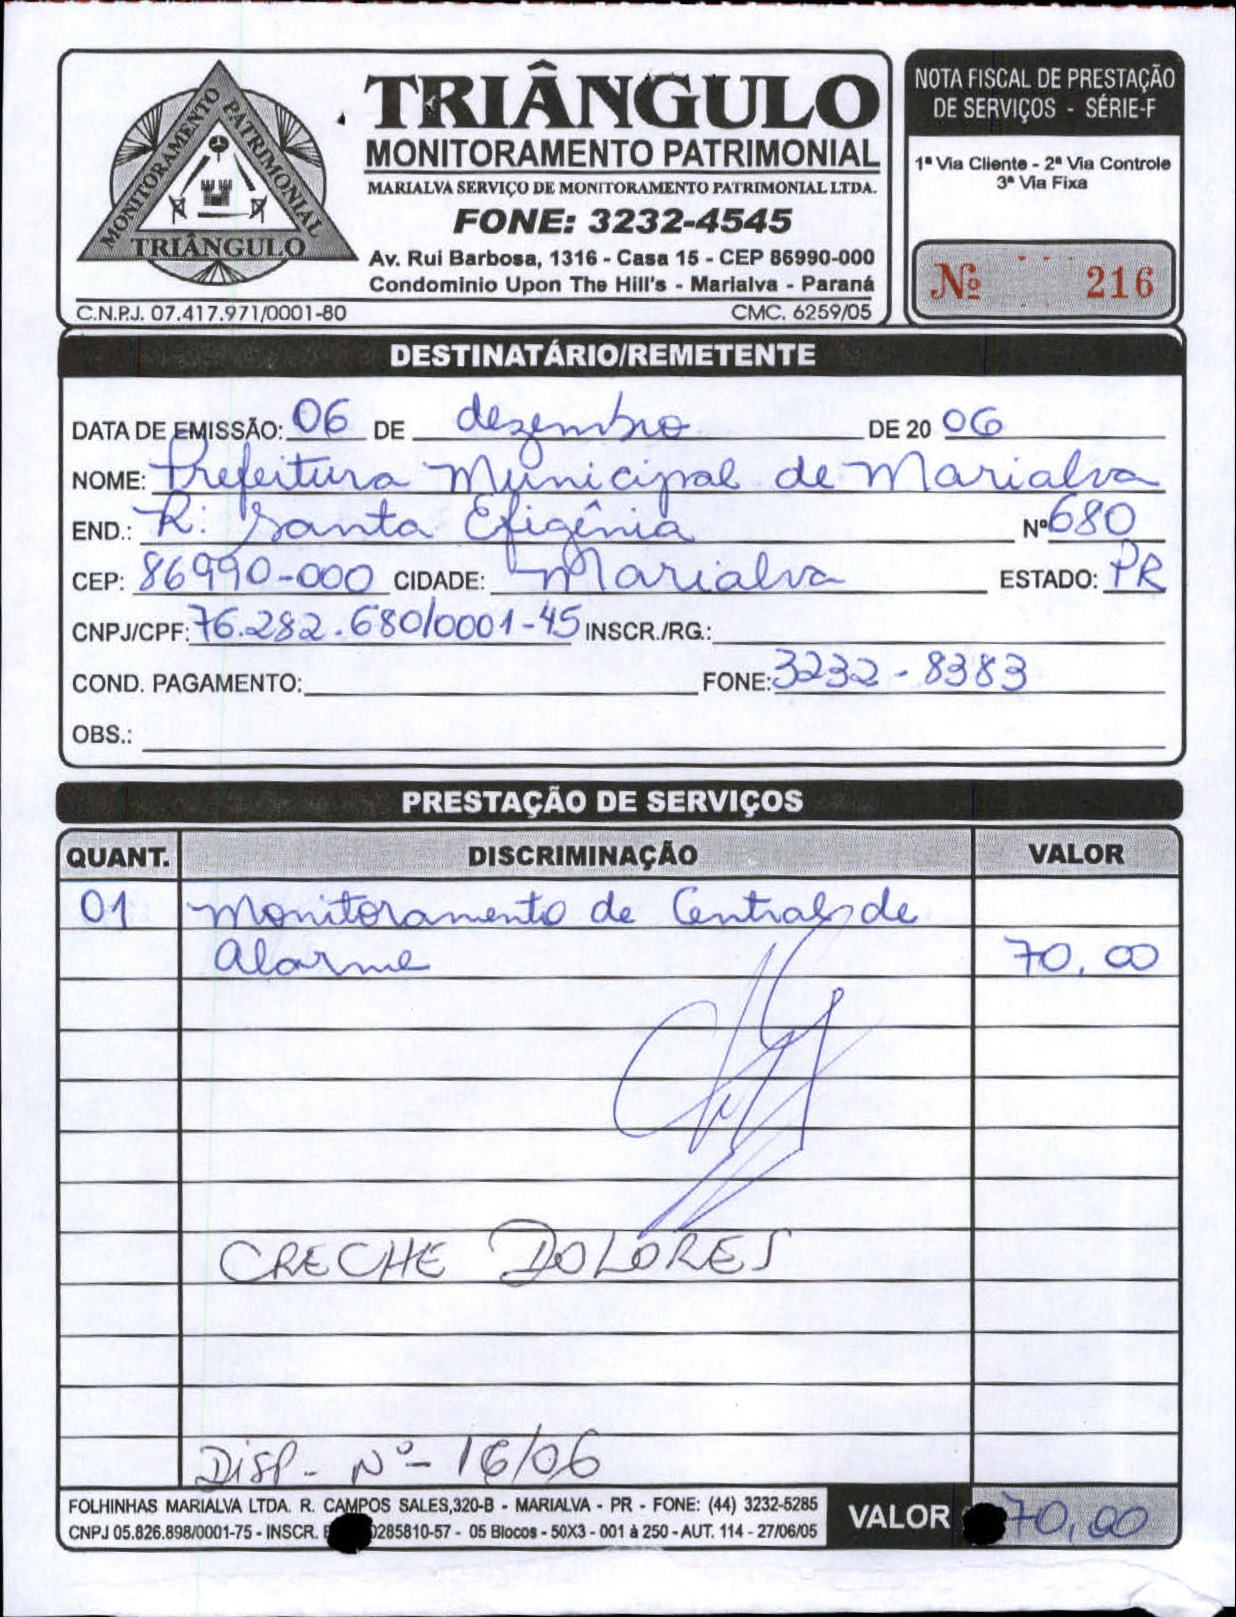 MONITORAMENTO PATRIMONIAL
TRIÂNGULO
TRIÂNGULO
MONITORAMENTO PATRIMONIAL
MARIALVA SERVIÇO DE MONITORAMENTO PATRIMONIAL LTDA.
FONE: 3232-4545
Av. Rui Barbosa, 1316 - Casa 15 - CEP 86990-000
Condominio Upon The Hill's - Marialva - Paraná
C.N.P.J. 07.417.971/0001-80 CMC. 6259/05
NOTA FISCAL DE PRESTAÇÃO
DE SERVIÇOS - SÉRIE-F
1ª Via Cliente - 2ª Via Controle
3ª Via Fixa
Nº 216
DESTINATÁRIO/REMETENTE
DATA DE EMISSÃO: 06 DE dezembro DE 20 06
NOME: Prefeitura Municipal de Marialva
END.: R: Santa Efigênia Nº 680
CEP: 86990-000 CIDADE: Marialva ESTADO: PR
CNPJ/CPF: 76.282.680/0001-45 INSCR./RG.:
COND. PAGAMENTO: FONE: 3232-8383
OBS.:
PRESTAÇÃO DE SERVIÇOS
QUANT. DISCRIMINAÇÃO VALOR
01 Monitoramento de Central de
Alarme 70,00
CRECHE DOLORES
DISP- Nº- 16/06
FOLHINHAS MARIALVA LTDA. R. CAMPOS SALES,320-B - MARIALVA - PR - FONE: (44) 3232-5285
CNPJ 05.826.898/0001-75 - INSCR. 285810-57 - 05 Blocos - 50X3 - 001 à 250 - AUT. 114 - 27/06/05
VALOR 70,00